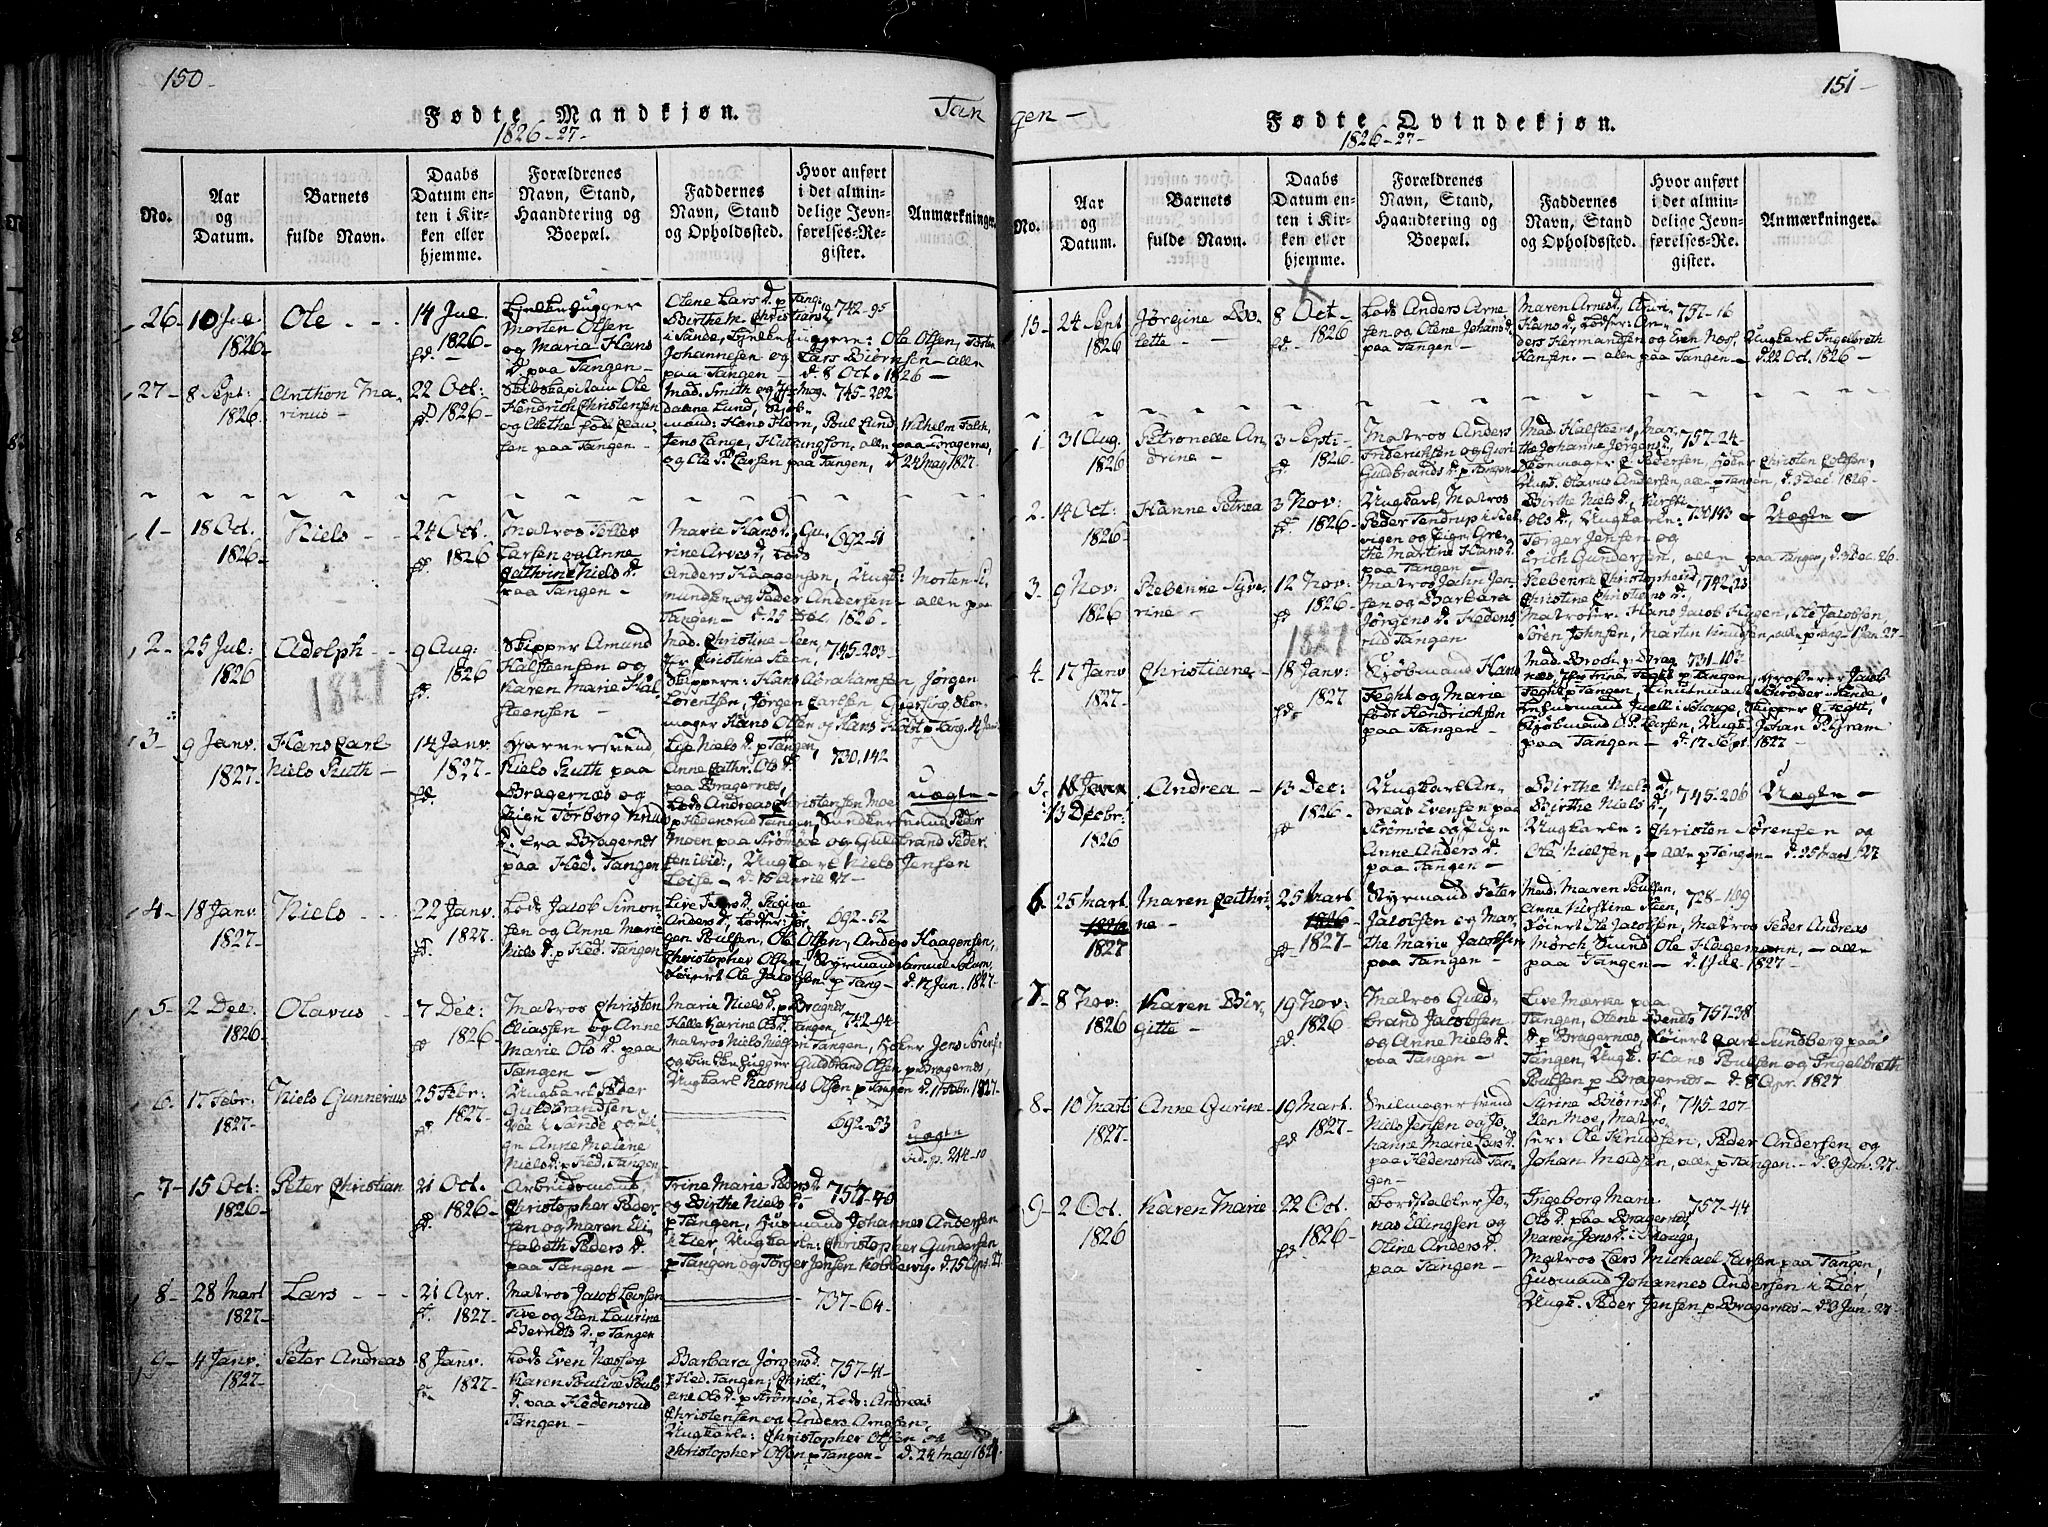 150-
Fødte Mandkjøn.
1826-27-
Tan
No.
Aar
og
Datum.
Barnets
fulde Navn.
Daabs
Datum en-
ten i Kir-
ken eller
hjemme.
Forældrenes
Navn, Stand,
Haandtering og
Boepæl.
Faddernes
Navn, Stand
og Opholdssted.
Hvor anført
i det almin-
delige Jevn-
førelses-Re-
gister.
Anmærkninger.
26-
10 Jul.
1826-
Ole - -
14 Jul.
1826-
Morten Olsen
og Maria Hans
d. paa Tangen-
Olene Lars d. p Tang:
Birthe M. Christians d.
i Sande,
Ole Olsen, Torsten
Johannesen og Lars Biørnsen - alle
paa Tangen - d. 8 Oct. 1826-
742-95
27-
8 Sept:
1826
Anthon Ma-
rinus-
22 Oct:
1826-
Skibskapitain Ole
Hendrich Christensen
fød Clau-
sen paa Tangen-
Mad. Smith og
Lund,
Hans Horn, Poul Lund, Wilhelm Falck,
Jens Lange, alle paa Bragernes,
og Ole P. Larsen paa Tangen, d 24 May 1827.
745-202
1-
18 Oct.
1826-
Niels - -
24 Oct.
1826
Matros Tollev
Larsen og Anne
Cathrine Niels d.
paa Tangen-
Marie Hans d., Gu-
rine Arves d., Lods
Anders Haagensen, Ungk: Morten Si-
mundsen og Peder Andersen - alle paa
Tangen - d. 25 Dec. 1826-
692-51
2-
25 Jul:
1826
1827
Adolph-
9 Aug:
1826
Skipper Amund
Halsteensen og
Karen Marie Hal-
steensen -
Mad. Christine Steen,
Jfr Christine Steen,
Skippere: Hans Abrahamsen Jørgen
Lorentsen, Jørgen Carlsen
Hans Olsen og Hans Holst p Tang.
745-203-
3-
9 Janv.
1827-
Hans Carl
Niels Ruth-
14 Janv.
1827-
Farversvend
Niels Ruth paa
Bragernæs og
Pigen Torborg Knuds
d. fra Bragernæs
paa Hed. Tangen
Lise Niels d. p Tangen,
Anne Cathr. Ols d.
paa Bragernæs,
Lods Andreas Christensen Moe
p Hedensrud Tangen, Peder
Moen paa Strømsøe og Guldbrand Peder-
sen ibid:, Ungkarl Niels Jensen
Loise - d. 15 April 27-
730.142
uægte-
4-
18 Janv.
1827-
Niels - -
22 Janv.
1827-
Lods Jacob Simon-
sen og Anne Marie
Niels d. p Hed. Tangen
Anders d., Lodser: Jør-
gen Poulsen, Ole Olsen, Anders Haagensen,
Christopher Olsen, Styrmand Samuel Solem,
Løiert Ole Jacobsen p Tang- d. 17 Jun. 1827-
692-52
5-
2 Dec:
1826-
Olavus - -
7 Dec:
1826-
Matros Christen
Eliassen og Anne
Marie Ols d. paa
Tangen-
Marie Niels d. p Bragnes
Helle Karine Ols d. Tangen,
Matros Niels Nielsen Tangen, Høker Jens Sørens-
Guldbrand Olsen p Bragernes,
Ungkarl Rasmus Olsen p Tangen d. 11 Febr. 1827-
742-94
6-
17 Febr:
1827-
Niels Gunnerius
25 Febr:
1827-
Ungkarl Peder
Guldbrandsen
i Sande og Pi-
gen Anne Malene
Niels d. p Hed. Tangen
692-53
uægte
vid. p. 214-10
7-
15 Oct:
1826-
Peter Christian
21 Oct.
1826-
Arbeidsmand
Christopher Peder-
sen og Maren Eli-
sabeth Peders d.
paa Tangen-
Trine Marie Peders d.
og Birthe Niels d.
p Tangen, Huusmand Johannes Andersen
i Lier, Ungkarle: Christopher Gundersen
p Tangen og Torger Jensen Kobbervig. d. 15 Apr. 27.
757-40
8-
28 Mart
1827-
Lars - -
21 Apr.
1827-
Matros Jacob Larsen
Tive og Elen Laurine
Bernts d. p Tangen
737-64-
9-
4 Janv.
1827-
Peter Andreas
8 Janv.
1827-
Lods Even Næss og
Karen Pouline Pouls
d. paa Hedensrud
Tangen-
Barbara Jørgens d.
p Hed. Tangen, Christi-
ane Ols d. p Strømsøe, Lods: Andreas
Christensen og Anders Arnesen,
Ungkarle: Christopher Olsen og
Christopher Olsen p Tangen- d. 24 May 1827.
757-41-
151-
gen-
Fødte Qvindekjøn.
1826-27-
No.
Aar
og
Datum.
Barnets
fulde Navn.
Daabs
Datum en-
ten i Kir-
ken eller
hjemme.
Forældrenes
Navn, Stand,
Haandtering og
Boepæl.
Faddernes
Navn, Stand
og Opholdssted.
Hvor anført
i det almin-
delige Jevn-
førelses-Re-
gister.
Anmærkninger.
15-
24 Sept
1826
Jørgine Bo-
lette -
8 Oct-
1826
Lods Anders Arne
sen og Olene Johans d.
paa Tangen-
Maren Arnes d.,
Hans d., Lodser: An-
ders Hermandsen og Even Næss, Ungkarl Ingelbreth
Hansen. - alle paa Tangen - d. 22 Oct. 1826-
757-16
1-
31 Aug.
1826
Petronelle An-
drine -
3 Septi-
1826-
Matros Anders
Friderichsen og Guri
Guldbrands d. p Tangen-
Mad. Halsteens, Mar-
the Johanne Jørgens d.,
Skomager C. Pedersen, Høker Christen Coldsen,
Olavus Andersen, alle p Tangen, d. 3 Dec. 1826-
757-24-
2-
14 Oct:
1826-
Hanne Petrea
3 Nov:
1826-
Ungkarl, Matros
Peder Tendrup i
vigen og Pigen Gre-
the Martine Hans d.
paa Tangen-
Birthe Niels d., Kirsti
Ols d., Ungkarle:
Torger Jensen og
Erich Gundersen, alle paa Tangen, d. 3 Dec. 26.
730.143-
Uægte-
3-
9 Nov:
1826-
Rebenne Syve-
rine -
12 Nov:
1826-
1827
Matros John Jen-
sen og Barbara
Jørgens d. Hedens
rud Tangen
Rebenne Christophers d.,
Christine Christians d.
Matroser: Hans Jacob Hagen, Ole Jacobsen,
Søren Johnsen, Martin Knudsen, alle p Tang. 1 Jan. 27-
742-23
4-
17 Janv
1827-
Christiane-
18 Janv:
1827-
Sjøbmand Hans
Feght og Marie
født Hendrichsen
paa Tangen-
Mad. Broch p Brag
næs, Jfr Trine Feght p Tangen, Jacob
Feght p Tangen, Schrøder i Sande,
Juell i Skouge, Skipper C. Feght,
Sjøbmand O. P. Larsen, Ungk. Johan Pilgram
paa Tangen - d. 17 Sept. 1827-
731-103
5-
18 Janv
13 Decbr:
1826
Andrea-
13 Dec:
1826-
Ungkarl An-
dreas Evensen paa
Strømsøe og Pigen
Anne Anders d.
paa Tangen-
Birthe Niels d.,
Birthe Niels d.,
Ungkarle: Christen Sørensen og
Ole Nielsen, - alle p Tangen- d. 25 Mart 1827
745-206
Uægte-
6-
25 Mart
1826
1827
Maren Cathri-
ne-
25 Mart
1826
1827-
Styrmand Peter
Jacobsen og Mar-
the Marie Jacobsen
paa Tangen-
Mad. Maren Poulsen,
Anne Kirstine Steen,
Løiert Ole Jacobsen, Matros Peder Andreas
Mørch Svend Ole Hagemann, - alle
paa Tangen - d. 1 Jul. 1827-
728-109
7-
8 Nov:
1826
Karen Bir-
gitte-
19 Nov:
1826-
Matros Guld-
brand Jacobsen
og Anne Niels d.
paa Tangen-
Live Mærke paa
Tangen, Olene Bendts
d. p Bragernæs, Løiert Carl Sundberg paa
Tangen, Ungk. Hans Poulsen og Ingelbreth
Poulsen p Bragernes- d. 8 Apr. 1827
757-38
8-
10 Mart
1827-
Anne Gurine-
19 Mart.
1827-
Seilmagersvend
Niels Jensen og Jo-
hanne Marie Lars d.
paa Hedensrud Tan-
gen-
Syrine Biørns d.,
Elen Moe, Matro-
ser: Ole Knudsen, Peder Andersen og
Johan Madsen, alle p Tangen.- d. 3 Jun. 27.
745-207-
9-
2 Oct.
1826
Karen Marie
22 Oct.
1826-
Bordstabler Jo-
nas Ellingsen og
Oline Anders d.
paa Tangen-
Ingeborg Marie
Ols d. paa Bragernes,
Maren Jens d. i Skouge,
Matros Lars Michael Larsen paa Tangen,
Huusmand Johannes Andersen i Lier,
Ungk. Peder Jensen p Bragernæs- d. 3 Jun. 27
757-44